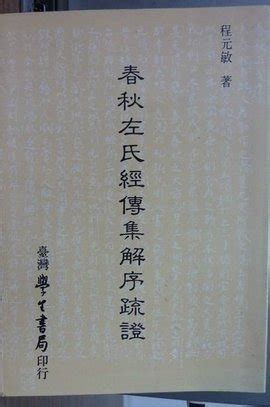 程元敏 著
春秋左氏經傳集解序疏證
臺灣學生書局印行